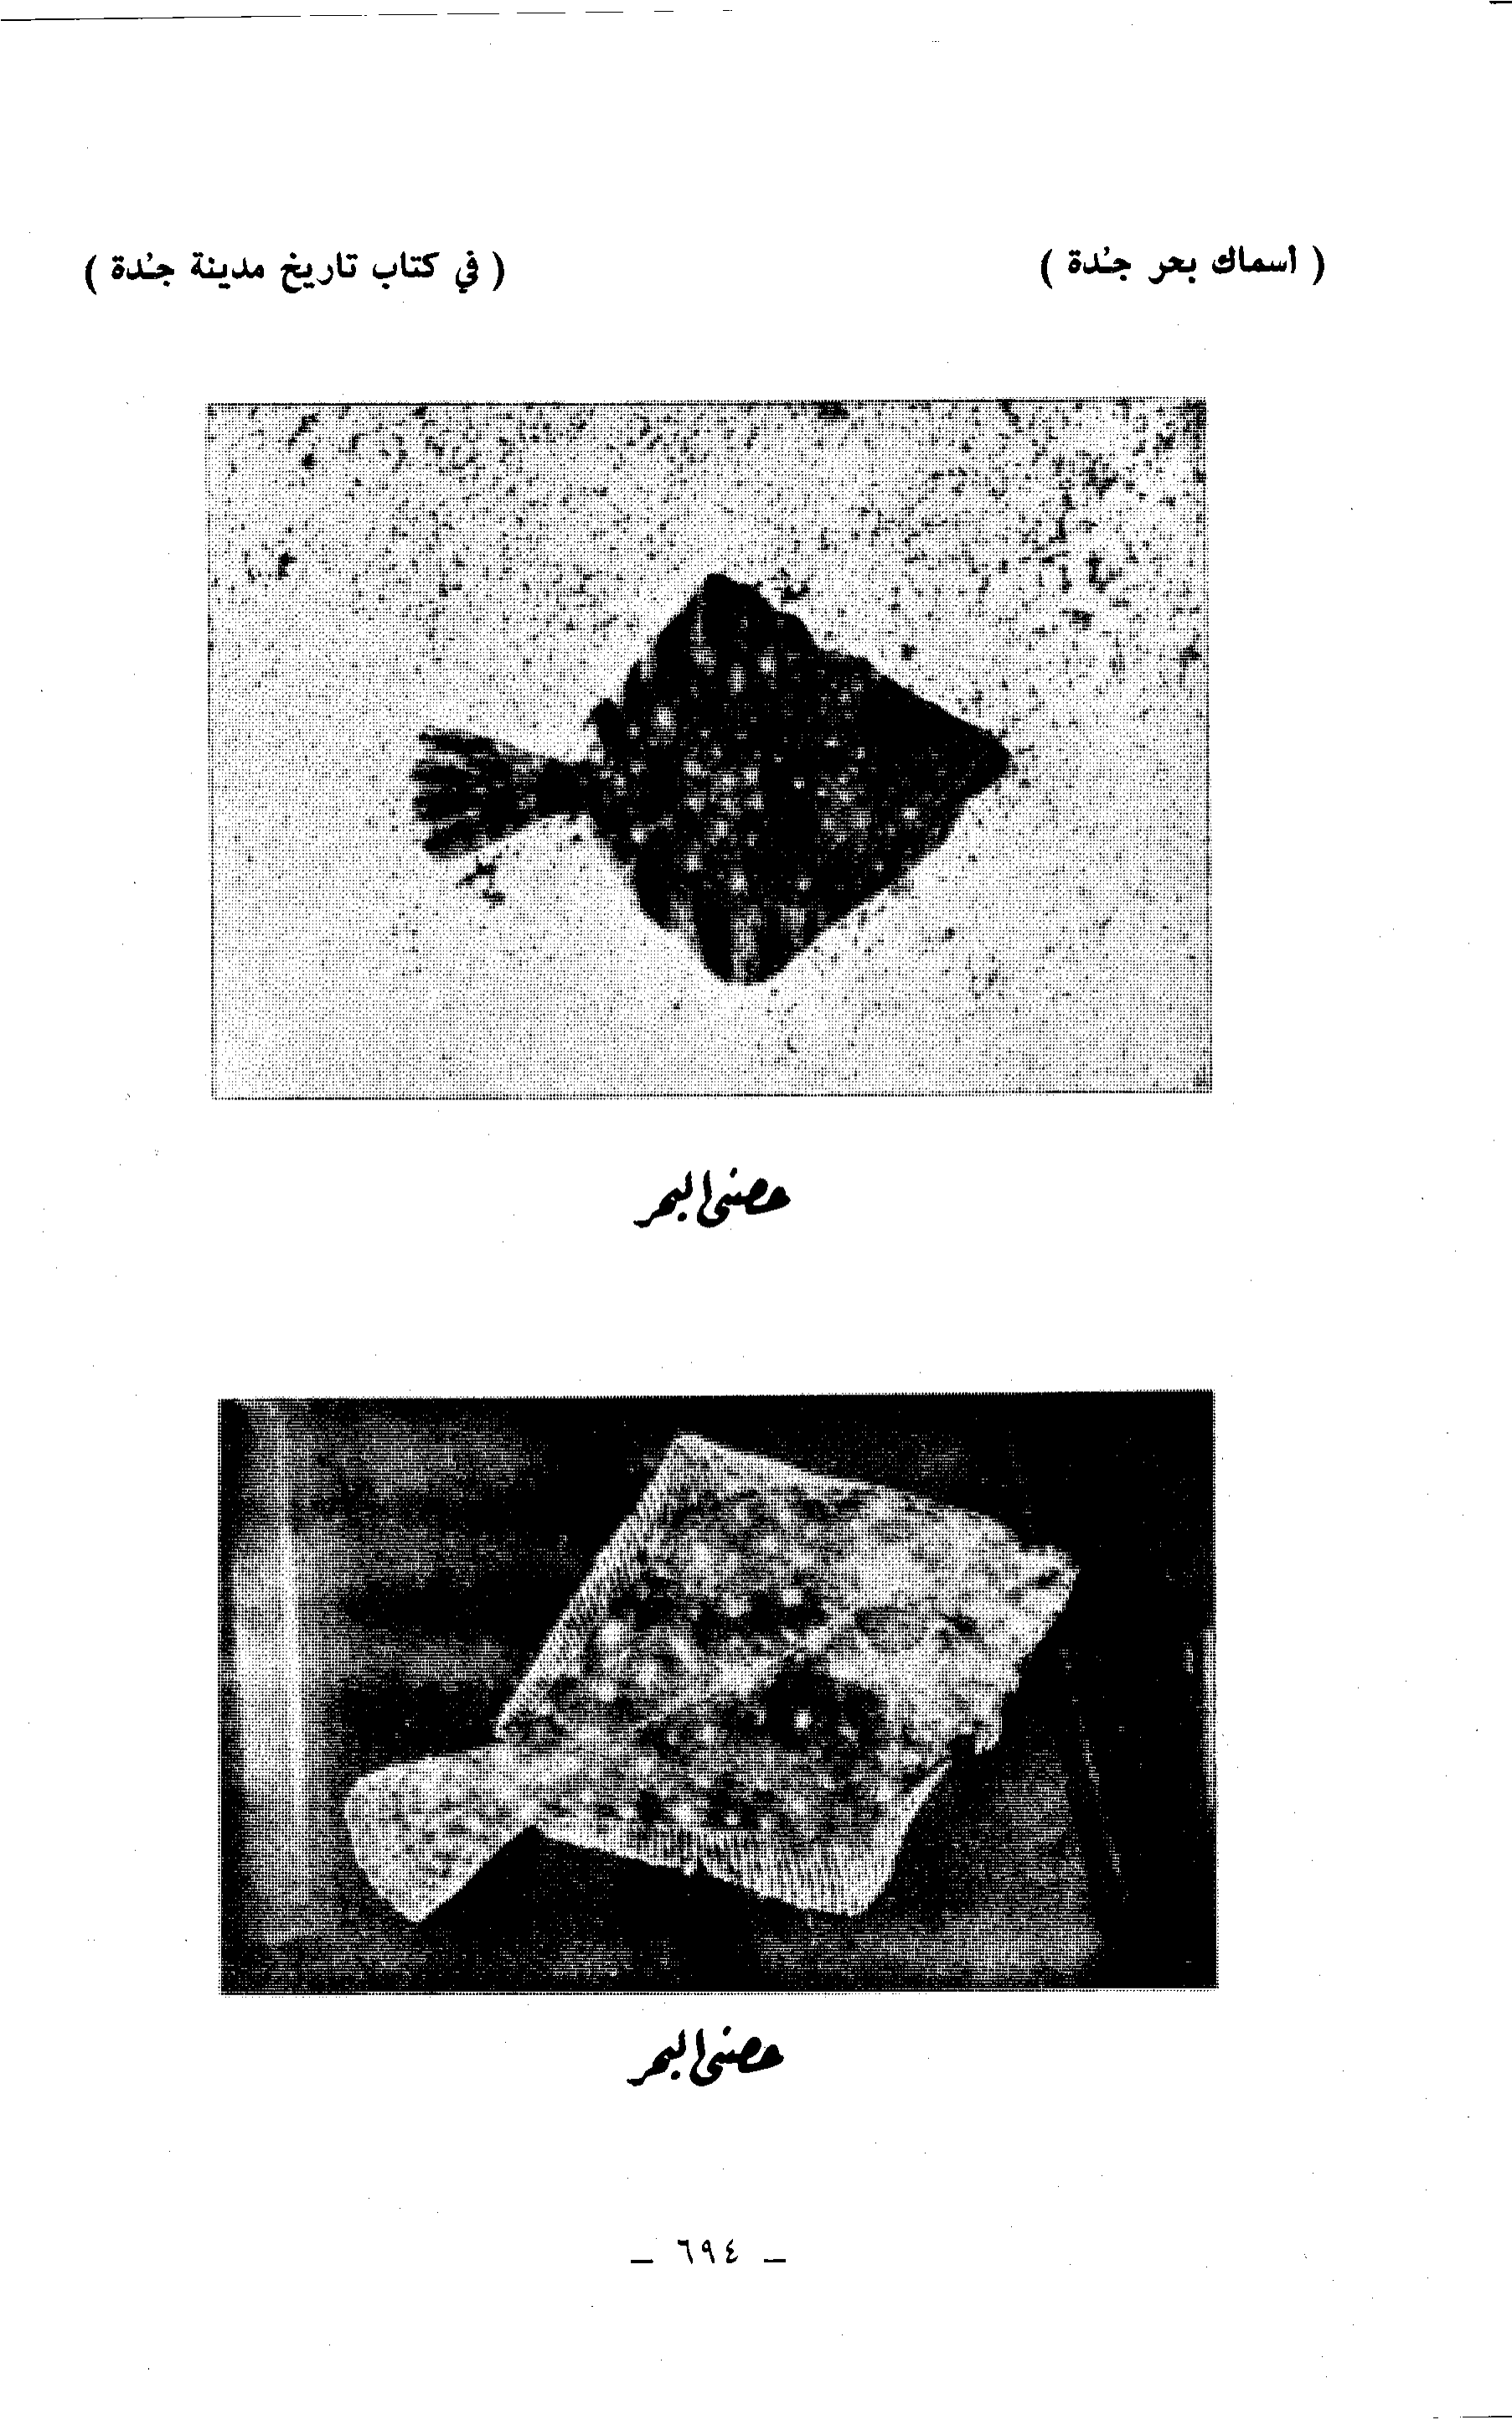 ( أسماك بحر جُدة )
( في كتاب تاريخ مدينة جُدة )
حصنى البحر
حصنى البحر
— ٦٩٤ —